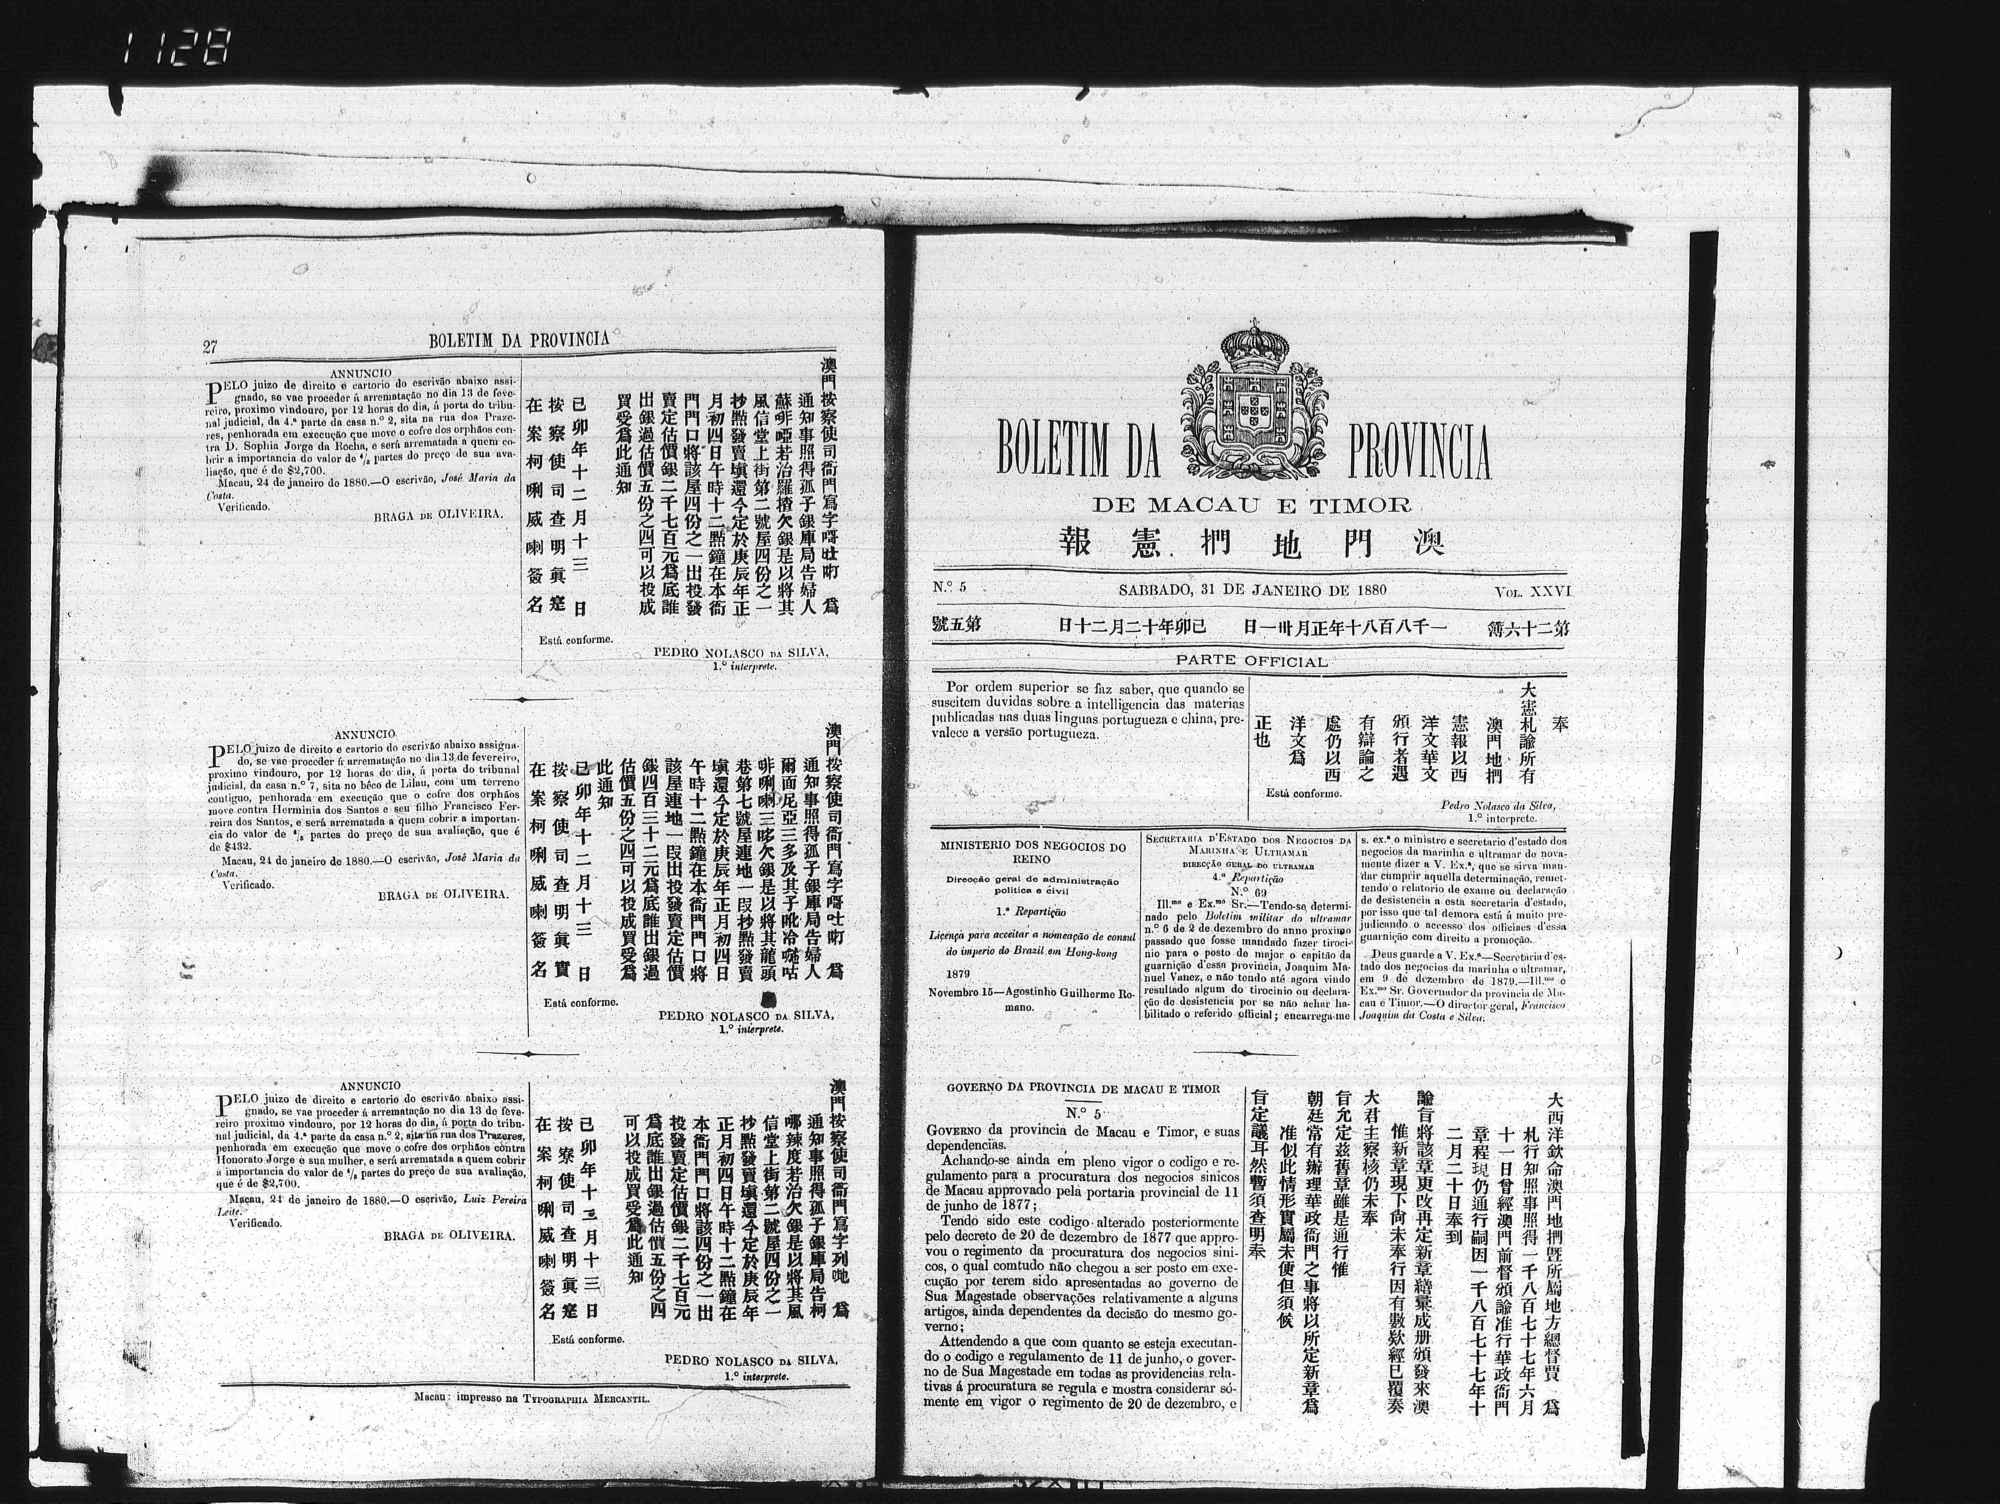 1128
27
BOLETIM DA PROVINCIA
ANNUNCIO
PELO juizo de direito e cartorio do escrivão abaixo assi-
gnado, se vae proceder á arrematação no dia 13 de feve-
reiro, proximo vindouro, por 12 horas do dia, á porta do tribu-
nal judicial, da 4.ª parte da casa n.º 2, sita na rua dos Praze-
res, penhorada em execução que move o cofre dos orphãos con-
tra D. Sophia Jorge da Rocha, e será arrematada a quem co-
brir a importancia do valor de ⁴/₅ partes do preço de sua ava-
liação, que é de $2,700.
Macau, 24 de janeiro de 1880.—O escrivão, José Maria da
Costa.
Verificado.
BRAGA DE OLIVEIRA.
澳門按察使司衙門寫字 爲
通知事照得孤子銀庫局告婦人
蘇啡啞若治羅楂欠銀是以將其
風信堂上街第二號屋四份之一
抄點發賣塡還今定於庚辰年正
月初四日午時十二點鐘在本衙
門門口將該屋四份之一出投發
賣定估價銀二千七百元爲底誰
出銀過估價五份之四可以投成
買受爲此通知
己卯年十二月十三日
按察使司查明眞寔
在案柯唎威喇簽名
Está conforme.
PEDRO NOLASCO DA SILVA,
1.º interprete.
ANNUNCIO
PELO juizo de direito e cartorio do escrivão abaixo assigna-
do, se vae proceder á arrematação no dia 13 de fevereiro,
proximo vindouro, por 12 horas do dia, á porta do tribunal
judicial, da casa n.º 7, sita no bêco de Lilau, com um terreno
contiguo, penhorada em execução que o cofre dos orphãos
move contra Herminia dos Santos e seu filho Francisco Fer-
reira dos Santos, e será arrematada a quem cobrir a importan-
cia do valor de ⁴/₅ partes do preço de sua avaliação, que é
de $432.
Macau, 24 de janeiro de 1880.—O escrivão, José Maria da
Costa.
Verificado.
BRAGA DE OLIVEIRA.
澳門按察使司衙門寫字 爲
通知事照得孤子銀庫局告婦人
爾面尼亞三多及其子
啡唎喇三哆欠銀是以將其龍頭
巷第七號屋連地一段抄點發賣
塡還今定於庚辰年正月初四日
午時十二點鐘在本衙門門口將
該屋連地一段出投發賣定估價
銀四百三十二元爲底誰出銀過
估價五份之四可以投成買受爲
此通知
己卯年十二月十三日
按察使司查明眞實
在案柯唎威喇簽名
Está conforme.
PEDRO NOLASCO DA SILVA,
1.º interprete.
ANNUNCIO
PELO juizo de direito e cartorio do escrivão abaixo assi-
gnado, se vae proceder á arrematação no dia 13 de feve-
reiro proximo vindouro, por 12 horas do dia, á porta do tribu-
nal judicial, da 4.ª parte da casa n.º 2, sita na rua dos Prazeres,
penhorada em execução que move o cofre dos orphãos contra
Honorato Jorge e sua mulher, e será arrematada a quem cobrir
a importancia do valor de ⁴/₅ partes do preço de sua avaliação,
que é de $2,700.
Macau, 24 de janeiro de 1880.—O escrivão, Luiz Pereira
Leite.
Verificado.
BRAGA DE OLIVEIRA.
澳門按察使司衙門寫字列哋 爲
通知事照得孤子銀庫局告柯
哪辣度若治欠銀是以將其風
信堂上街第二號屋四份之一
抄點發賣塡還今定於庚辰年
正月初四日午時十二點鐘在
本衙門門口將該四份之一出
投發賣定估價銀二千七百元
爲底誰出銀過估價五份之四
可以投成買受爲此通知
己卯年十二月十三日
按察使司查明眞寔
在案柯唎威喇簽名
Está conforme.
PEDRO NOLASCO DA SILVA,
1.º interprete.
Macau: impresso na TYPOGRAPHIA MERCANTIL.
BOLETIM DA PROVINCIA
DE MACAU E TIMOR
報憲捫地門澳
N.º 5
SABBADO, 31 DE JANEIRO DE 1880
VOL. XXVI
號五第
日十二月二十年卯己 日一卅月正年十八百八千一
簿六十二第
PARTE OFFICIAL
Por ordem superior se faz saber, que quando se
suscitem duvidas sobre a intelligencia das materias
publicadas nas duas linguas portugueza e china, pre-
valece a versão portugueza.
奉
大憲札諭所有
澳門地捫
憲報以西
洋文華文
頒行者遇
有辯論之
處仍以西
洋文爲
正也
Está conforme.
Pedro Nolasco da Silva,
1.º interprete.
MINISTERIO DOS NEGOCIOS DO
REINO
Direcção geral de administração
politica e civil
1.ª Repartição
Licença para acceitar a nomeação de consul
do imperio do Brazil em Hong-kong
1879
Novembro 15—Agostinho Guilherme Ro-
mano.
SECRETARIA D'ESTADO DOS NEGOCIOS DA
MARINHA E ULTRAMAR
DIRECÇÃO GERAL DO ULTRAMAR
4.ª Repartição
N.º 69
Ill.mo e Ex.mo Sr.—Tendo-se determi-
nado pelo Boletim militar do ultramar
n.º 6 de 2 de dezembro do anno proximo
passado que fosse mandado fazer tiroci-
nio para o posto de major o capitão da
guarnição d'essa provincia, Joaquim Ma-
nuel Vanez, e não tendo até agora vindo
resultado algum do tirocinio ou declara-
ção de desistencia por se não achar ha-
bilitado o referido official; encarrega-me
s. ex.ª o ministro e secretario d'estado dos
negocios da marinha e ultramar de nova-
mente dizer a V. Ex.ª, que se sirva man-
dar cumprir aquella determinação, remet-
tendo o relatorio de exame ou declaração
de desistencia a esta secretaria d'estado,
por isso que tal demora está á muito pre-
judicando o accesso dos officiaes d'essa
guarnição com direito a promoção.
Deus guarde a V. Ex.ª—Secretaria d'es-
tado dos negocios da marinha e ultramar,
em 9 de dezembro de 1879.—Ill.mo e
Ex.mo Sr. Governador da provincia de Ma-
cau e Timor.—O director geral, Francisco
Joaquim da Costa e Silva.
GOVERNO DA PROVINCIA DE MACAU E TIMOR
N.º 5
GOVERNO da provincia de Macau e Timor, e suas
dependencias.
Achando-se ainda em pleno vigor o codigo e re-
gulamento para a procuratura dos negocios sinicos
de Macau approvado pela portaria provincial de 11
de junho de 1877;
Tendo sido este codigo alterado posteriormente
pelo decreto de 20 de dezembro de 1877 que appro-
vou o regimento da procuratura dos negocios sini-
cos, o qual comtudo não chegou a ser posto em exe-
cução por terem sido apresentadas ao governo de
Sua Magestade observações relativamente a alguns
artigos, ainda dependentes da decisão do mesmo go-
verno;
Attendendo a que com quanto se esteja executan-
do o codigo e regulamento de 11 de junho, o gover-
no de Sua Magestade em todas as providencias rela-
tivas á procuratura se regula e mostra considerar só-
mente em vigor o regimento de 20 de dezembro, e
大西洋欽命澳門地捫曁所屬地方總督賈 爲
札行知照事照得一千八百七十七年六月
十一日曾經澳門前督頒諭准行華政衙門
章程現仍通行嗣因一千八百七十七年十
二月二十日奉到
諭旨將該章更改再定新章繕彙成册頒發來澳
惟新章現下尙未奉行因有數欵經已覆奏
大君主察核仍未奉
旨允定茲舊章雖是通行惟
朝廷當有辦理華政衙門之事將以所定新章爲
准似此情形實屬未便但須候
旨定議耳然暫須查明奉